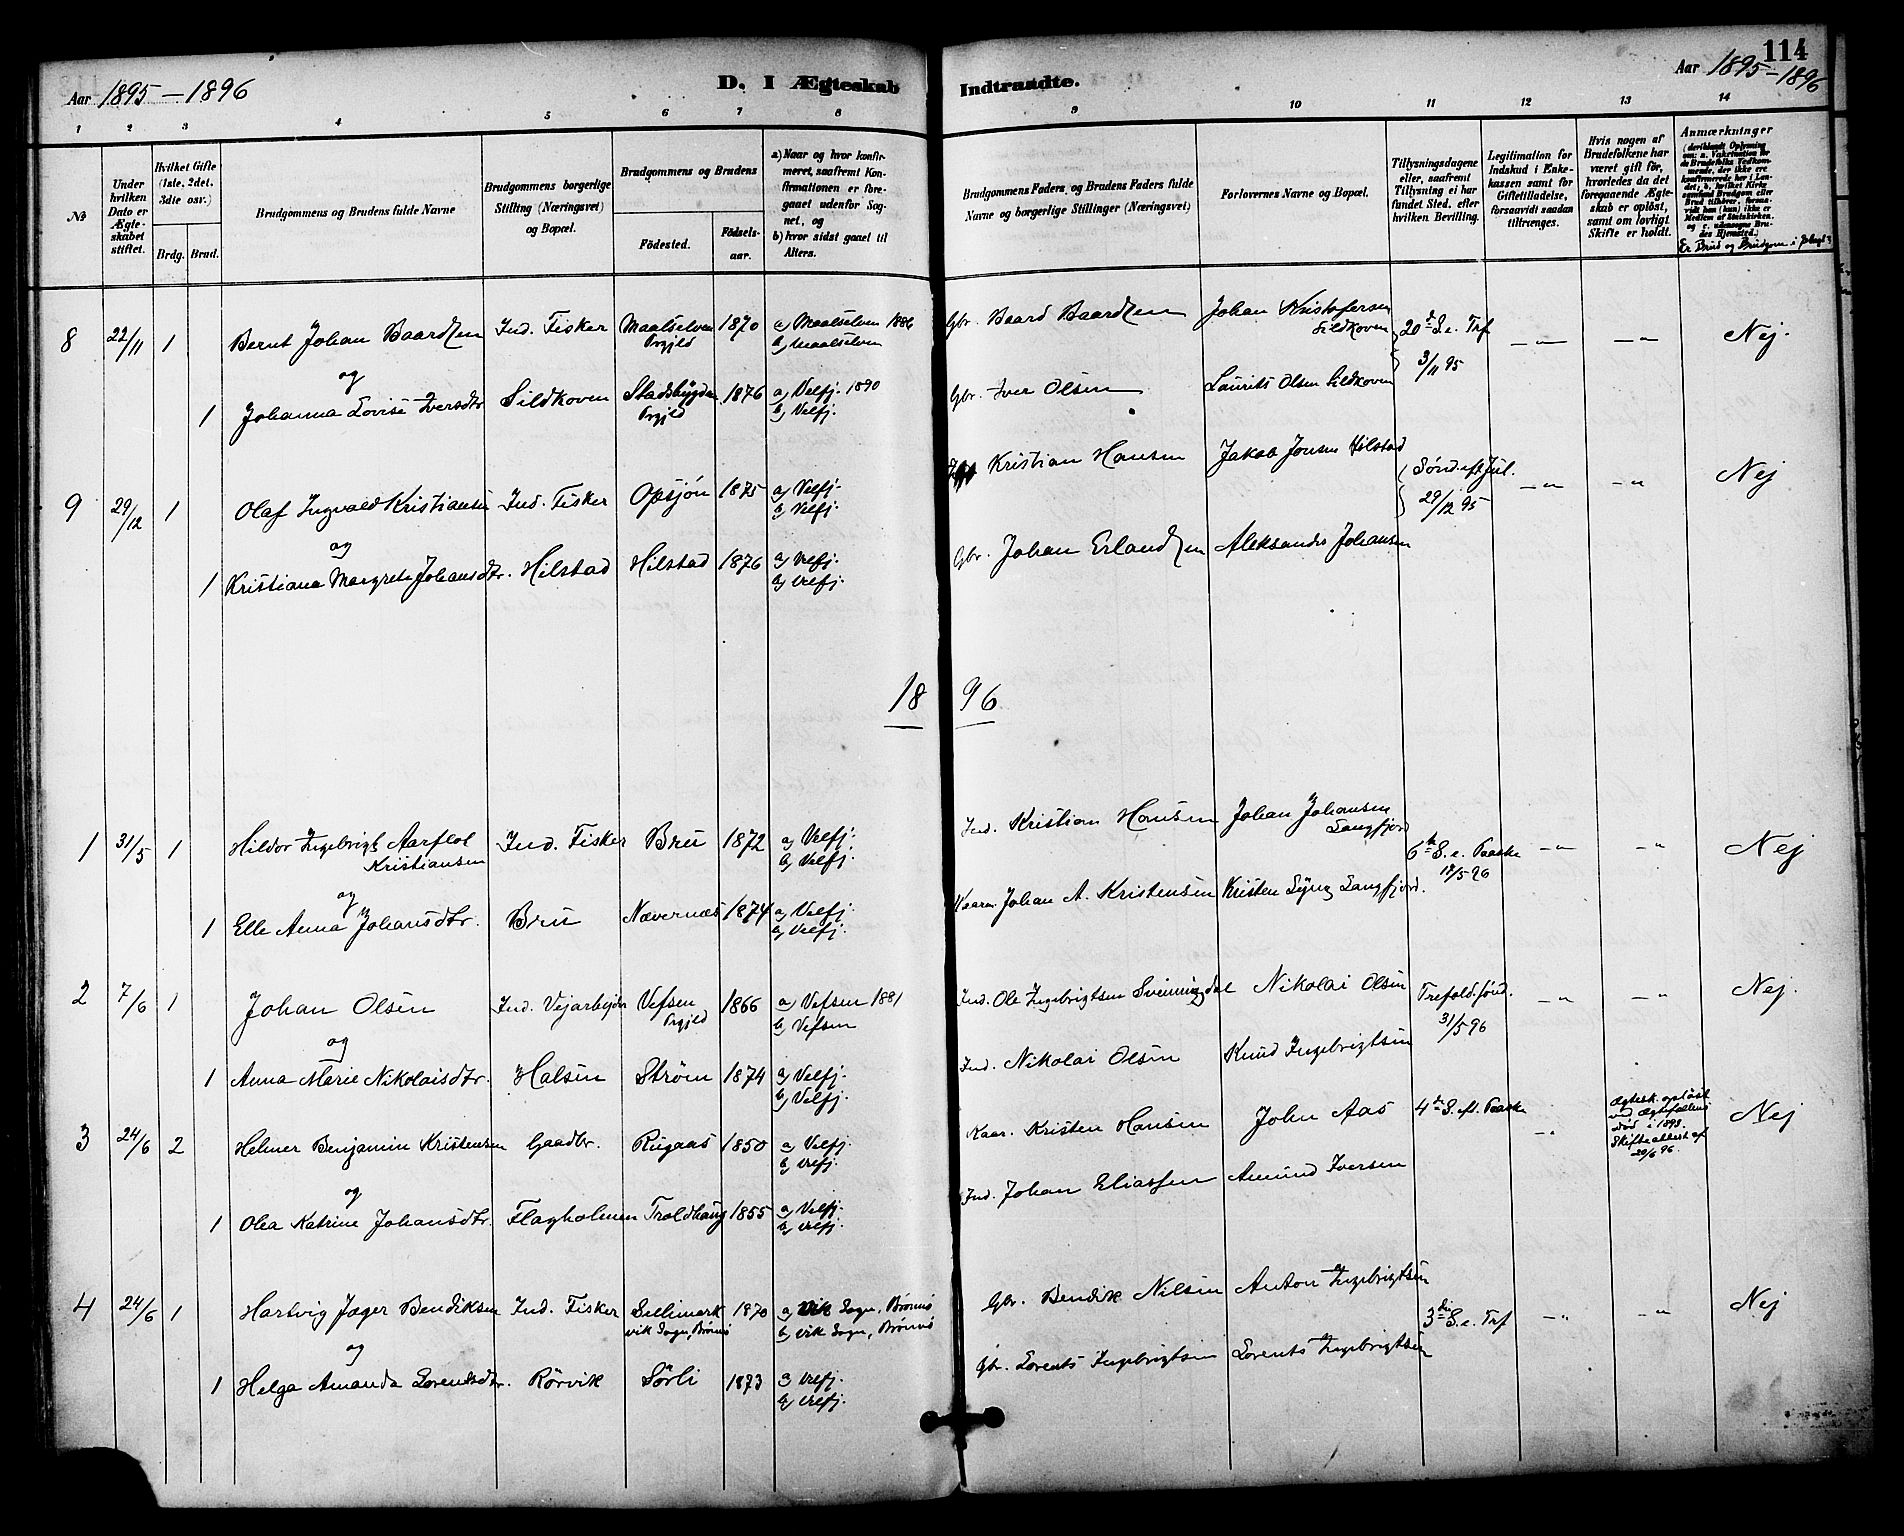 114
Aar 1895-1896 D. I Ægteskab Indtraadte. Aar 1895-1896
1 2 3 4 5 6 7 8 9 10 11 12 13 14
No
Under hvilken Dato er Ægteskabet stiftet.
Hvilket Gifte (1ste, 2det, 3die osv.)
Brdg. Brud.
Brudgommens og Brudens fulde Navne
Brudgommens borgerlige Stilling (Næringsvei) og Bopæl.
Brudgommens og Brudens
Fødested.
Fødselsaar.
a) Naar og hvor konfirmeret, saafremt Konfirmationen er foregaaet udenfor Sognet, og
b) hvor sidst gaaet til Alters.
Brudgommens Faders og Brudens Faders fulde Navne og borgerlige Stillinger (Næringsvei)
Forlovernes Navne og Bopæl.
Tillysningsdagene eller, saafremt Tillysning ei har fundet Sted, efter hvilken Bevilling.
Legitimation for Indskud i Enkekassen samt for Giftetilladelse, forsaavidt saadan tiltrænges.
Hvis nogen af Brudefolkene har været gift før, hvorledes da det foregaaende Ægteskab er opløst, samt om lovligt Skifte er holdt.
Anmærkninger
Er Brud og Brudgom i
8 22/11 1 Bernt Johan Baardsen Ind. Fisker Maalselven Prgjld 1870 a) Maalselven 1886 b) Maalselven Gbr. Baard Baardsen Johan Kristofersen Sildkoven 20de S. e. Trf 3/11 95 -"- -"- Nej.
og
1 Johanna Lovise Iversdtr Sildkoven Stadsbygden Prgjld 1876 a) Velfj. 1890 b) Velfj. Gbr. Iver Olsen Laurits Olsen Sildkoven
9 29/12 1 Olaf Ingvald Kristiansen Ind. Fisker Opsjøn 1875 a) Velfj. b) Velfj. Kristian Hansen Jakob Jonsen Hilstad Sønd. eft. Jul. 29/12 95 -"- -"- Nej
og
1 Kristiana Margrete Johansdtr. Hilstad Hilstad 1876 a) Velfj. b) Velfj. Gbr. Johan Erlandsen Aleksander Johansen
1896
1 31/5 1 Hildor Ingebrigt Aarflot Kristiansen Ind. Fisker Bru 1872 a) Velfj. b) Velfj. Ind. Kristian Hansen Johan Johansen Langfjord 6te S. e. Paaske -"- -"- Nej
og
1 Elle Anna Johansdtr. Bru Nævernæs 1874 a) Velfj. b) Velfj. Kaarm. Johan A. Kristensen Kristen Lyng Langfjord.
2 7/6 1 Johan Olsen Ind. Vejarbejder Vefsen Prgjld 1866 a) Vefsen 1881 b) Vefsen Ind. Ole Ingebrigtsen Svenningdal Nikolai Olsen Trefold. sønd. 31/5 96 -"- -"- Nej.
og
1 Anna Marie Nikolaisdtr. Halsen Strøm 1874 a) Velfj. b) Velfj. Ind. Nikolai Olsen Knud Ingebrigtsen
3 24/6 2 Helmer Benjamin Kristensen Gaardbr. Rugaas 1850 a) Velfj. b) Velfj. Kaar. Kristen Hansen John Aas 4de S. eft. Paaske -"- Ægtesk. opløst ved Ægtefællens død i 1893. Skifteattest af 20/6 96. Nej
og
1 Olea Katrine Johansdtr. Flagholmen Troldhaug 1855 a) Velfj. b) Velfj. Ind. Johan Eliassen Amund Iversen
4 24/6 1 Hartvig Jæger Bendiksen Ind. Fisker Vik Sogn, Brønnø 1870 a) Vik Sogn, Brønnø b) Vik Sogn, Brønnø Gbr. Bendik Nilsen Anton Ingebrigtsen 3die S. e. Trf -"- -"- Nej
og
1 Helga Amanda Lorentsdtr. Rørvik Sørli 1873 a) Velfj. b) Velfj. Gbr. Lorents Ingebrigtsen Lorents Ingebrigtsen